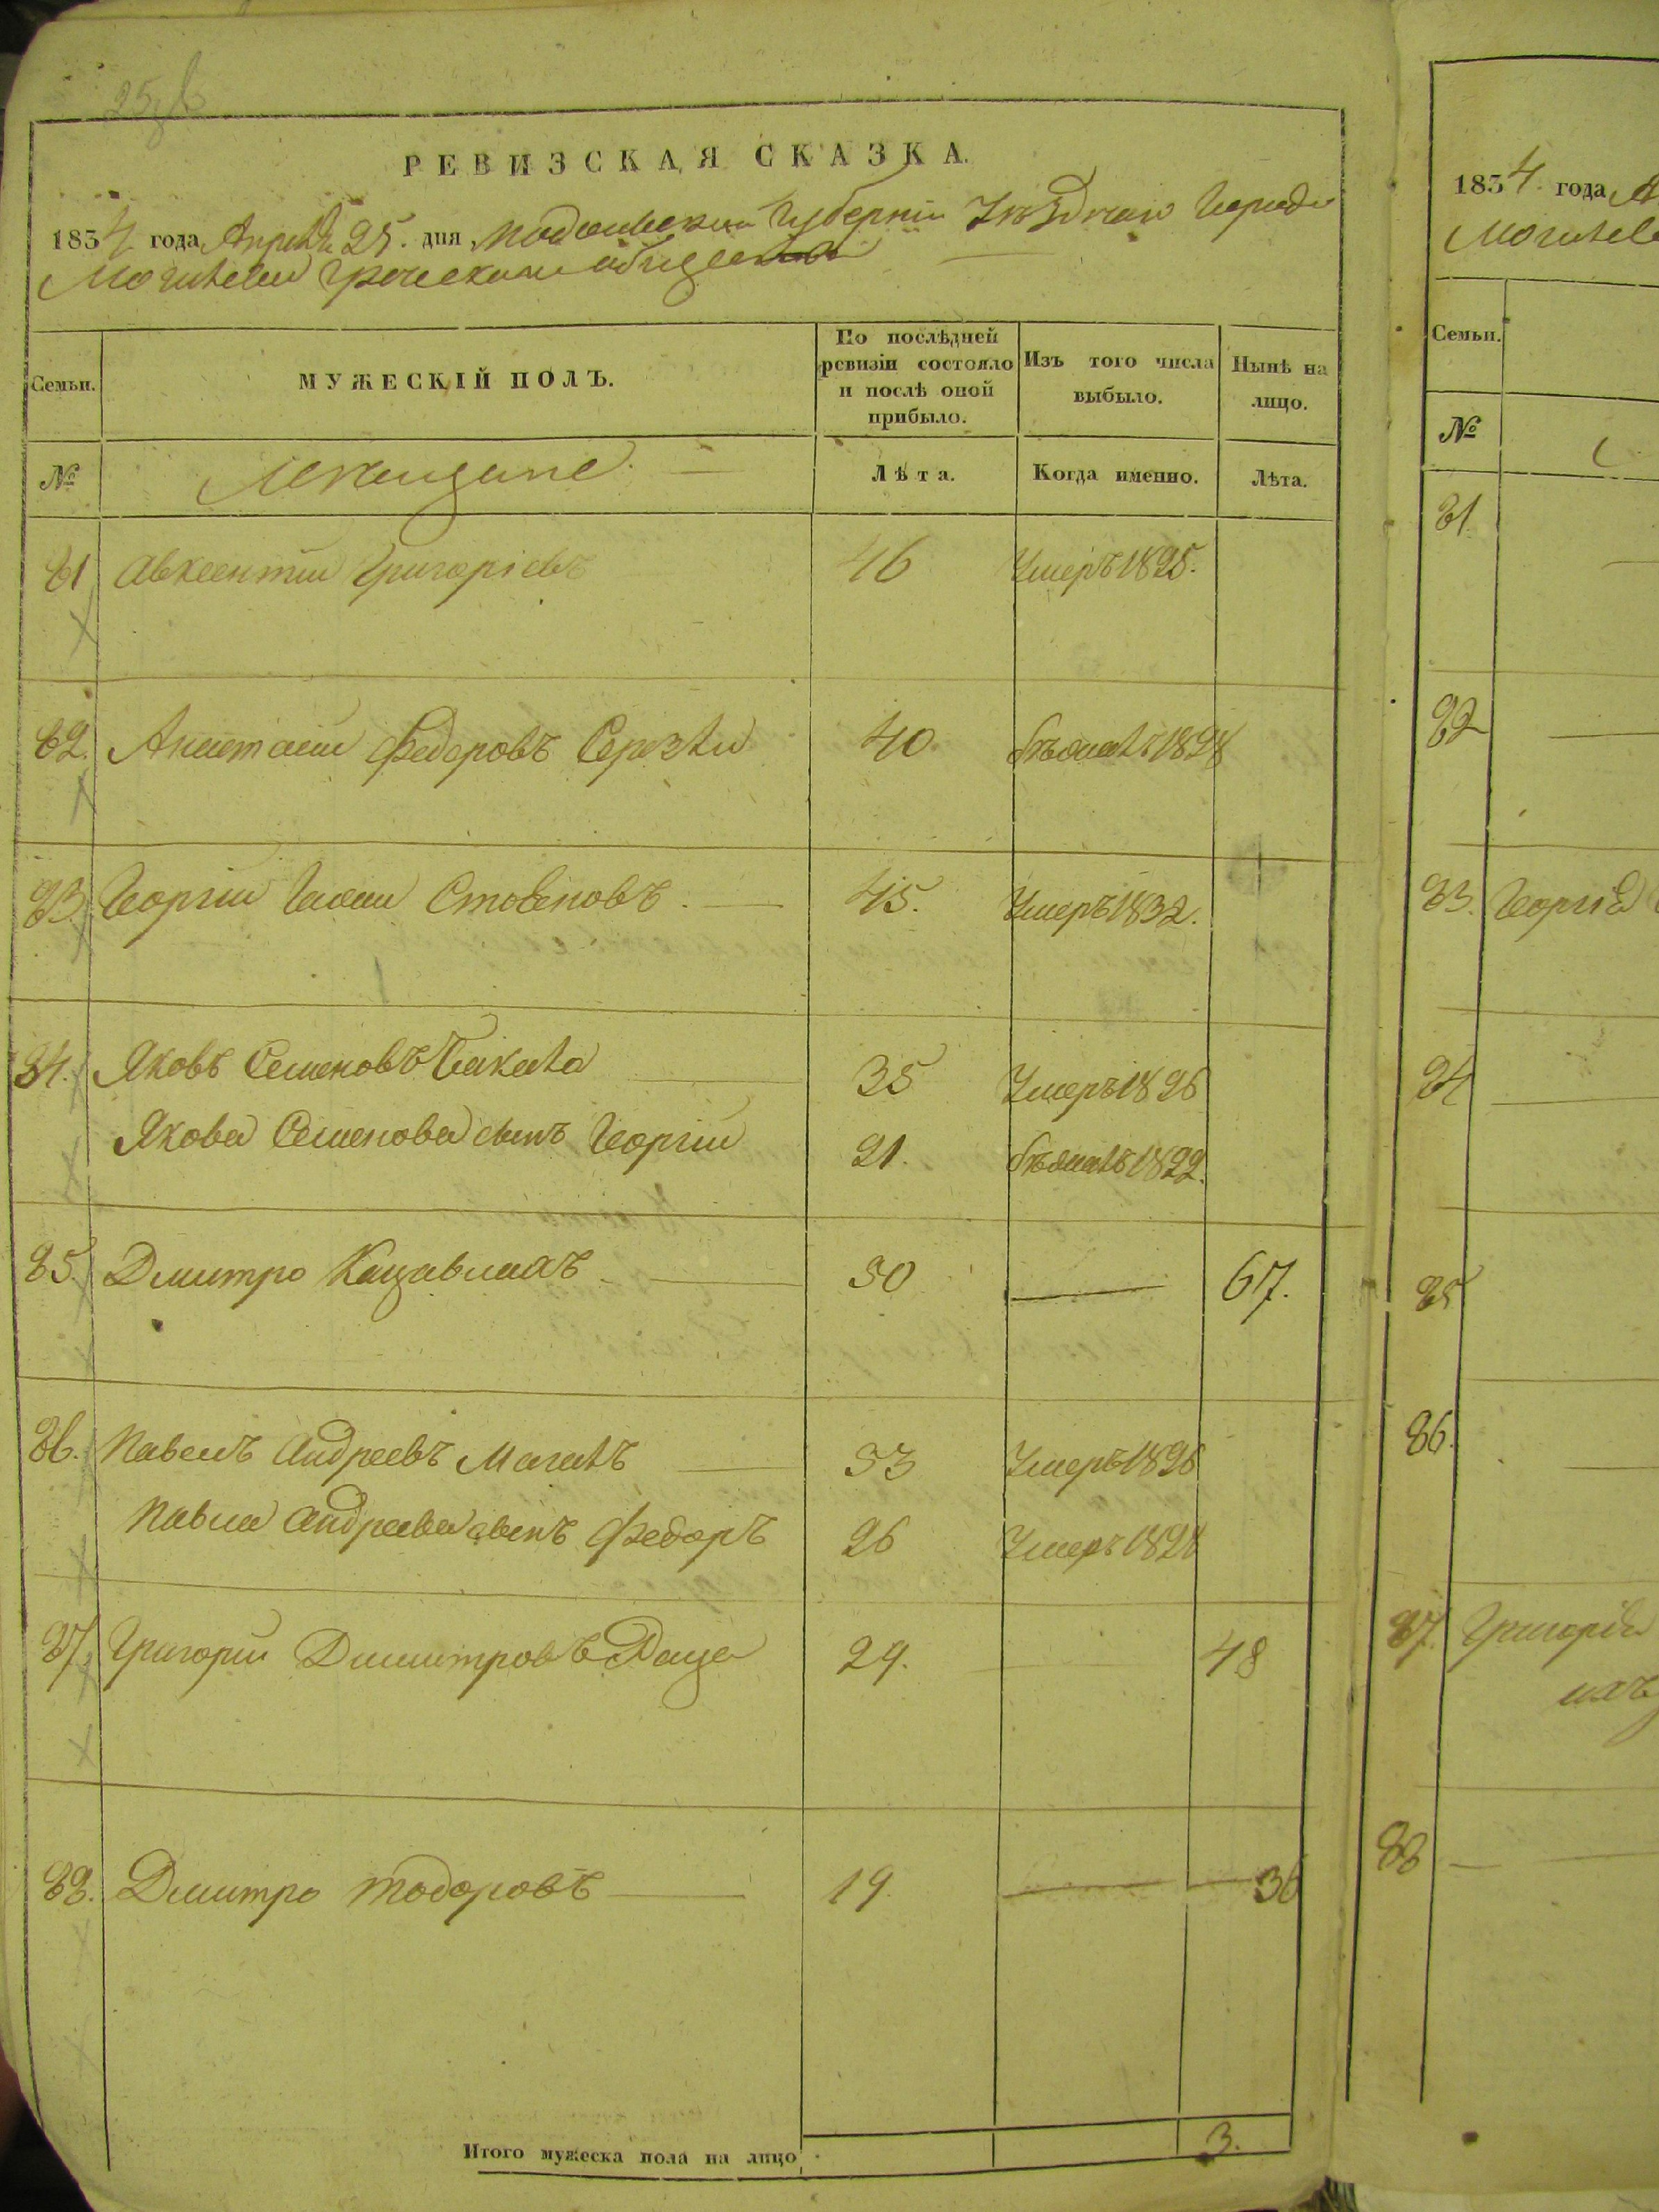 РЕВИЗСКАЯ СКАЗКА.
1834 года Апреля 25. дня, Подольской Губернии Уѣзднаго Города
Могилева Греческаго общества
Семьи.
МУЖЕСКІЙ ПОЛЪ.
По послѣдней ревизіи состояло и послѣ оной прибыло.
Изъ того числа выбыло.
Нынѣ на лицо.
№
Мещане.
Лѣта.
Когда именно.
Лѣта.
81 Авксентій Григоріевъ 46 Умеръ 1825.
82. Анастасій Федоровъ 40
83. Георгій Стовеновъ. 45. Умеръ 1832.
84. Яковъ Семеновъ Бакала 35 Умеръ 1826
Якова Семенова сынъ Георгій 21. 1822.
85. Дмитро Кацавлахъ 50 67.
86. Павелъ Андреевъ 53 Умеръ 1826
Павла Андреева сынъ Федоръ 26 Умеръ 1828
87. Григорій Димитровъ 29. 48
88. Дмитро Тодоровъ 19. 36
Итого мужеска пола на лицо 3.
1834 года
Семьи.
№
81
82
83. Георгія
84
85
86.
87. Григорія
ихъ
88